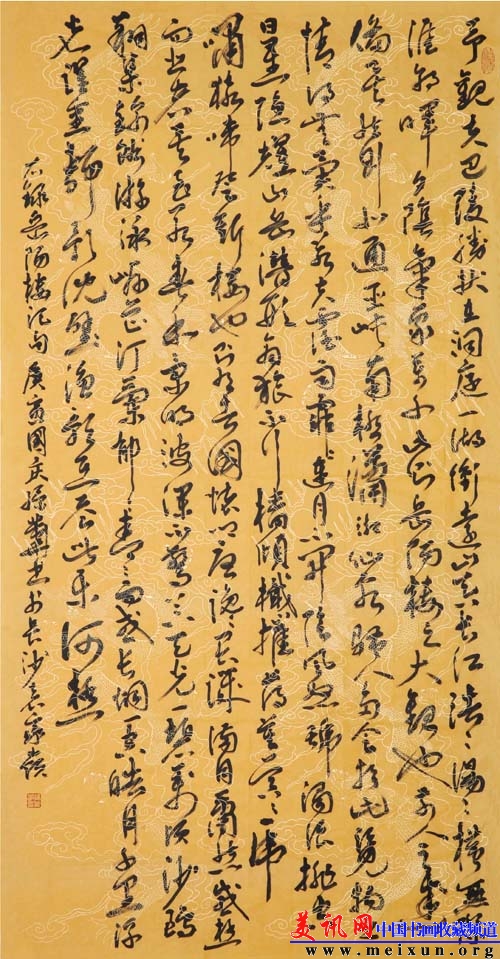 予觀夫巴陵勝狀在洞庭一湖銜遠山吞長江浩々湯々橫無際
涯朝暉夕陰氣象萬千此則岳陽樓之大觀也前人之述
備矣然則北通巫峽南極瀟湘客騷人多會於此覽物之
情得無異乎若夫霪雨霏々連月不開陰風怒號濁浪排空
日星隱耀山岳潛形商旅不行檣傾楫摧薄暮冥々虎
嘯猿啼登斯樓也則有去國懷鄉憂讒畏譏滿目蕭然感極
而悲者矣至若春和景明波瀾不驚上下天光一碧萬頃沙鷗
翔集錦鱗游泳岸芷汀蘭郁々青々而或長烟一空皓月千里浮
光躍金靜影沈璧漁歌互答此樂何極
右錄岳陽樓記句庚寅國慶孫書於長沙袁家嶺
美讯网 中国书画收藏频道
www.meixun.org